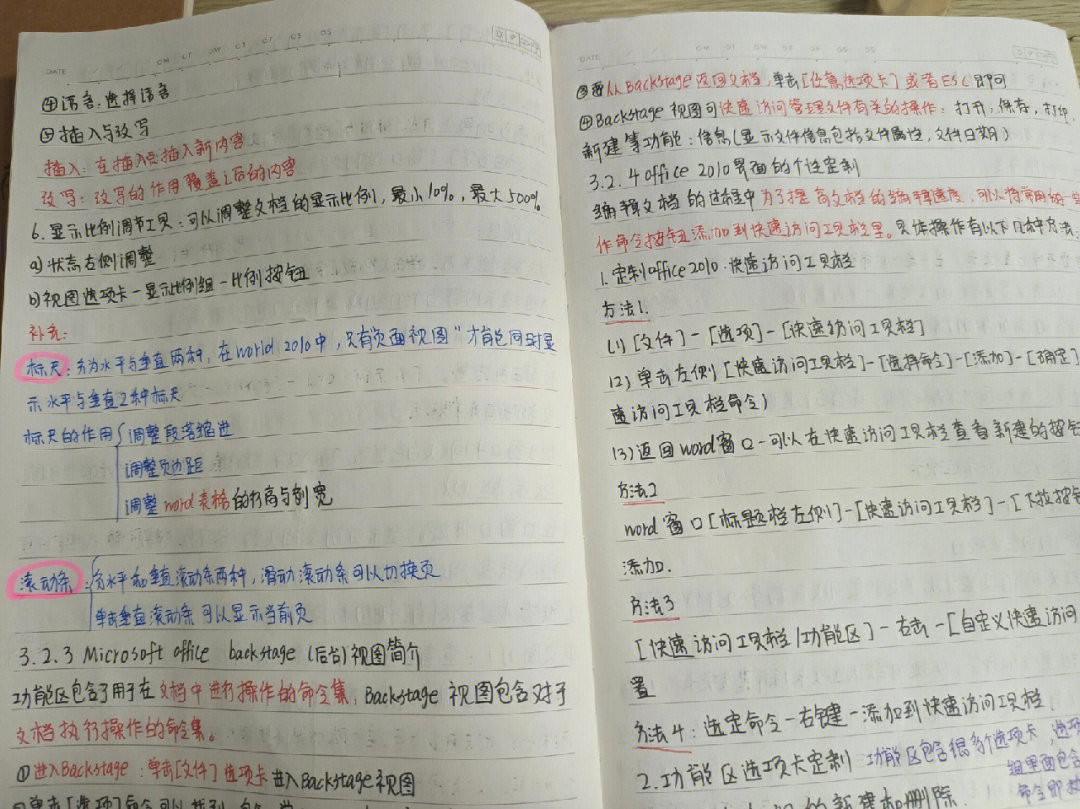 DATE
④语言:选择语言
⑤插入与改写
插入:在插入点插入新内容
改写:改写的作用覆盖之后的内容
6.显示比例调节工具:可以调整文档的显示比例,最小10%,最大500%
a)状态右侧调整
b)视图选项卡-显示比例组-比例按钮
补充:
标尺:分为水平与垂直两种,在world 2010中,只有页面视图"才能同时显
示水平与垂直2种标尺
标尺的作用{调整段落缩进
调整页边距
调整word表格的行高与列宽
滚动条:{分水平和垂直滚动条两种,滑动滚动条可以切换页
单击垂直滚动条可以显示当前页
3.2.3 Microsoft office backstage(后台)视图简介
功能区包含了用于在文档中进行操作的命令集,Backstage视图包含对于
文档执行操作的命令集。
①进入Backstage:单击[文件]选项卡进入Backstage视图
DATE
③要从Backstage返回文档,单击[任意选项卡]或者ESC即可
④Backstage视图可快速访问管理文件有关的操作:打开,保存,打印,
新建等功能;信息(显示文件信息包括文件属性,文件日期)
3.2.4 office 2010界面的个性定制
编辑文档的过程中为了提高文档的编辑速度,可以将常用的一些
作命令按钮添加到快速访问工具栏里。具体操作有以下几种方法:
1.定制office2010.快速访问工具栏
方法1.
(1)[文件]-[选项]-[快速访问工具栏]
(2)单击左侧[快速访问工具栏]-[选择命令]-[添加]-[确定]
速访问工具栏命令)
(3)返回word窗口-可以在快速访问工具栏查看新建的按钮
方法2
word窗口[标题栏左侧]-[快速访问工具栏]-[下拉按钮
添加.
方法3
[快速访问工具栏/功能区]-右击-[自定义快速访问
置
方法4:选定命令-右键-添加到快速访问工具栏
2.功能区选项卡定制 功能区包含很多个选项卡,选项
组里面包含
命令即
的新建和删除